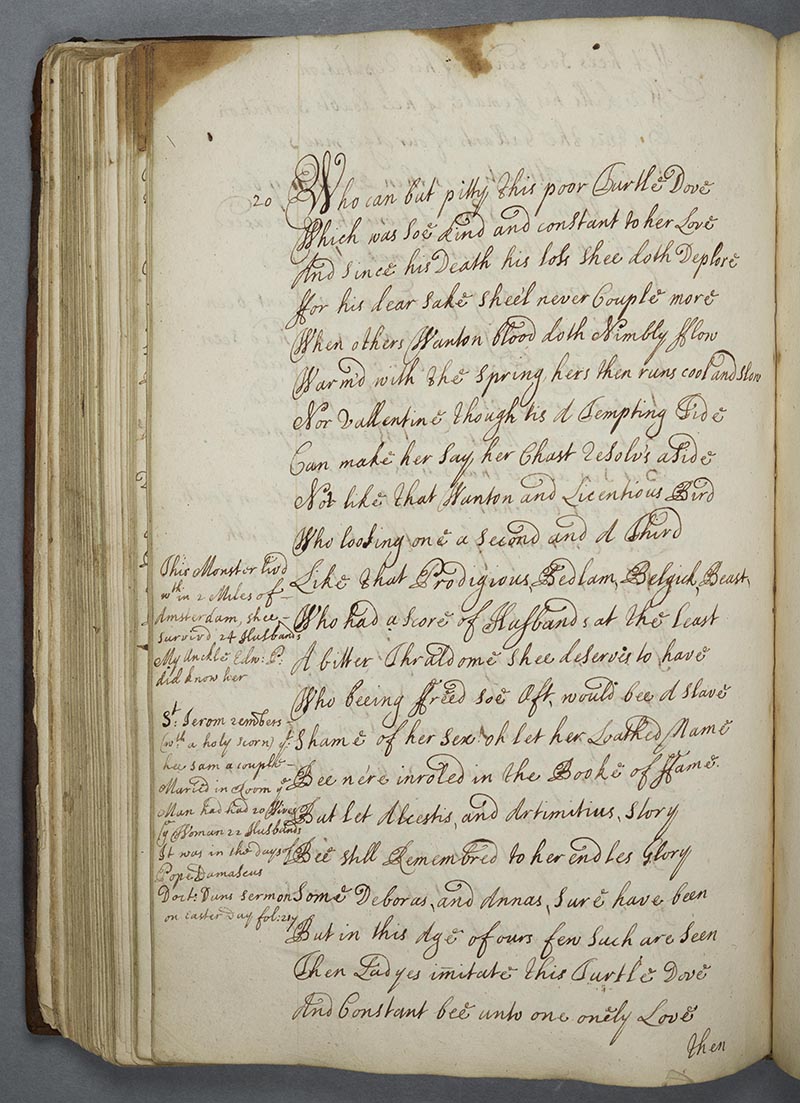 20
Who can but pitty this poor Turtle Dove
Which was soe kind and constant to her Love
And since his Death his loss shee doth Deplore
ffor his dear sake shee'l never Couple more
When others Wanton blood doth Nimbly fflow
Warm'd with the spring hers then runs cool and slow
Nor Vallentine though tis A Tempting Tide
Can make her say her Chast resolvs aside
Not like that Wanton and Licentious Bird
Who loosing one a second and A Third
Like that Prodigious, Bedlam, Belgick, Beast,
Who had a score of Husbands at the least
A bitter Thraldome shee deserves to have
Who beeing ffreed soe Oft, would bee A slave
Shame of her Sex oh let her Loathed Name
Bee ne're inroled in the Booke of ffame
But let Alcestis, and Artimitius, story
Bee still Remembred to her endles Glory
Some Deboras, and Annas, sure have been
But in this Age of ours few such are seen
Then Ladyes imitate this Turtle Dove
And Constant bee unto one onely Love
then
This Monster liv'd
wth in 2 Miles of
Amsterdam, shee
surviv'd 24 Husbands
My Unckle Edw: P:
did know her
St: Jerom rembers
(wth a holy scorn) yt
hee saw a couple
Maried in Room ye
Man had had 20 Wives
ye Woman 22 Husbands
It was in the Days of
Pope Damascus
Doct: Duns Sermon
on Easter Day fol: 217